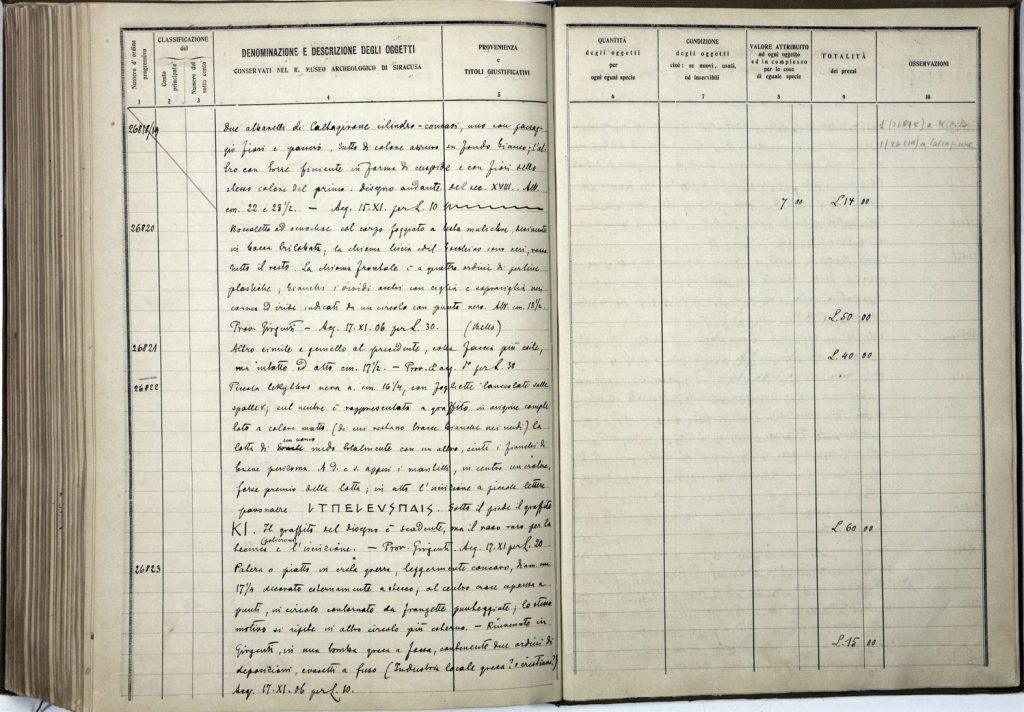 Numero d'ordine progressivo
CLASSIFICAZIONE del
Conto principale
Numero del sotto conto
DENOMINAZIONE E DESCRIZIONE DEGLI OGGETTI
CONSERVATI NEL R. MUSEO ARCHEOLOGICO DI SIRACUSA
PROVENIENZA
e
TITOLI GIUSTIFICATIVI
1 2 3 4 5
QUANTITÀ
degli oggetti
per
ogni eguai specie
CONDIZIONE
degli oggetti
cioè: se nuovi, usati,
od inservibili
VALORE ATTRIBUITO
ad ogni oggetto
ed in complesso
per le cose
di eguale specie
TOTALITÀ
dei prezzi
OSSERVAZIONI
6 7 8 9 10
26818/19
Due albarelli di Caltagirone cilindro-concavi, uno con paesaggio
fiori e , tutto di colore azzurro su fondo bianco; l'al-
tro con torre finiente in forma di cuspide e con fiori dello
stesso colore del primo. Disegno andante del sec. XVIII. Alt.
cm. 22 e 23 1/2. — Acq. 15. XI. per L. 10
7 00
L. 14 00
1 (26818) a
1 (26819) a Caltagirone
26820
Boccaletto ad oinochoe col corpo foggiato a testa muliebre, finiente
in bocca trilobata; la chioma liscia ed il sono neri, rosso
tutto il resto. La chioma frontale è a quattro ordini di perline
plastiche; bianchi i vividi occhi con ciglia e sopraciglia neri
cornea ed iride indicati da un circolo con punto nero. Alt. cm. 18 1/2.
Prov. Girgenti — Acq. 17. XI. 06 per L. 30. (bello)
L. 50 00
26821
Altro simile e gemello al precedente, colla faccia più esile,
ma intatto ed alto cm. 17 1/2. — Prov. ed acq. per L. 30
L. 40 00
26822
Piccola lekythos nera a. cm. 16 1/4, con fogliette lanceolate sulle
spalle; sul ventre è rappresentata a graffito in origine comple-
tato a colore matto (di cui restano tracce bianche nei nudi) la
lotta di un uomo nudo totalmente con un altro, cinti i fianchi di
breve perizoma. A d. e s. appesi i mantelli, in centro un cratere,
forse premio della lotta; in alto l'iscrizione a piccole lettere
paonazze. ΙΤΠΕLΕVSΠΑΙS. Sotto il piede il graffito
KI. Il graffito del disegno è scadente, ma il vaso raro per la
tecnica e l'iscrizione. — Prov. Girgenti. Acq. 17. XI per L. 20
L. 60 00
26823
Patera o piatto in creta grezza, leggermente concavo, diam. cm.
17 1/4 decorato esternamente a stecco; al centro croce espansa a
punti, in circolo contornato da frangette punteggiate; lo stesso
motivo si ripete in altro circolo più esterno. — Rinvenuto in
Girgenti, in una tomba greca a fossa, contenente due ordini di
deposizioni, (Industria locale greca? o cristiana?)
Acq. 17. XI. 06 per L. 10.
L. 15 00